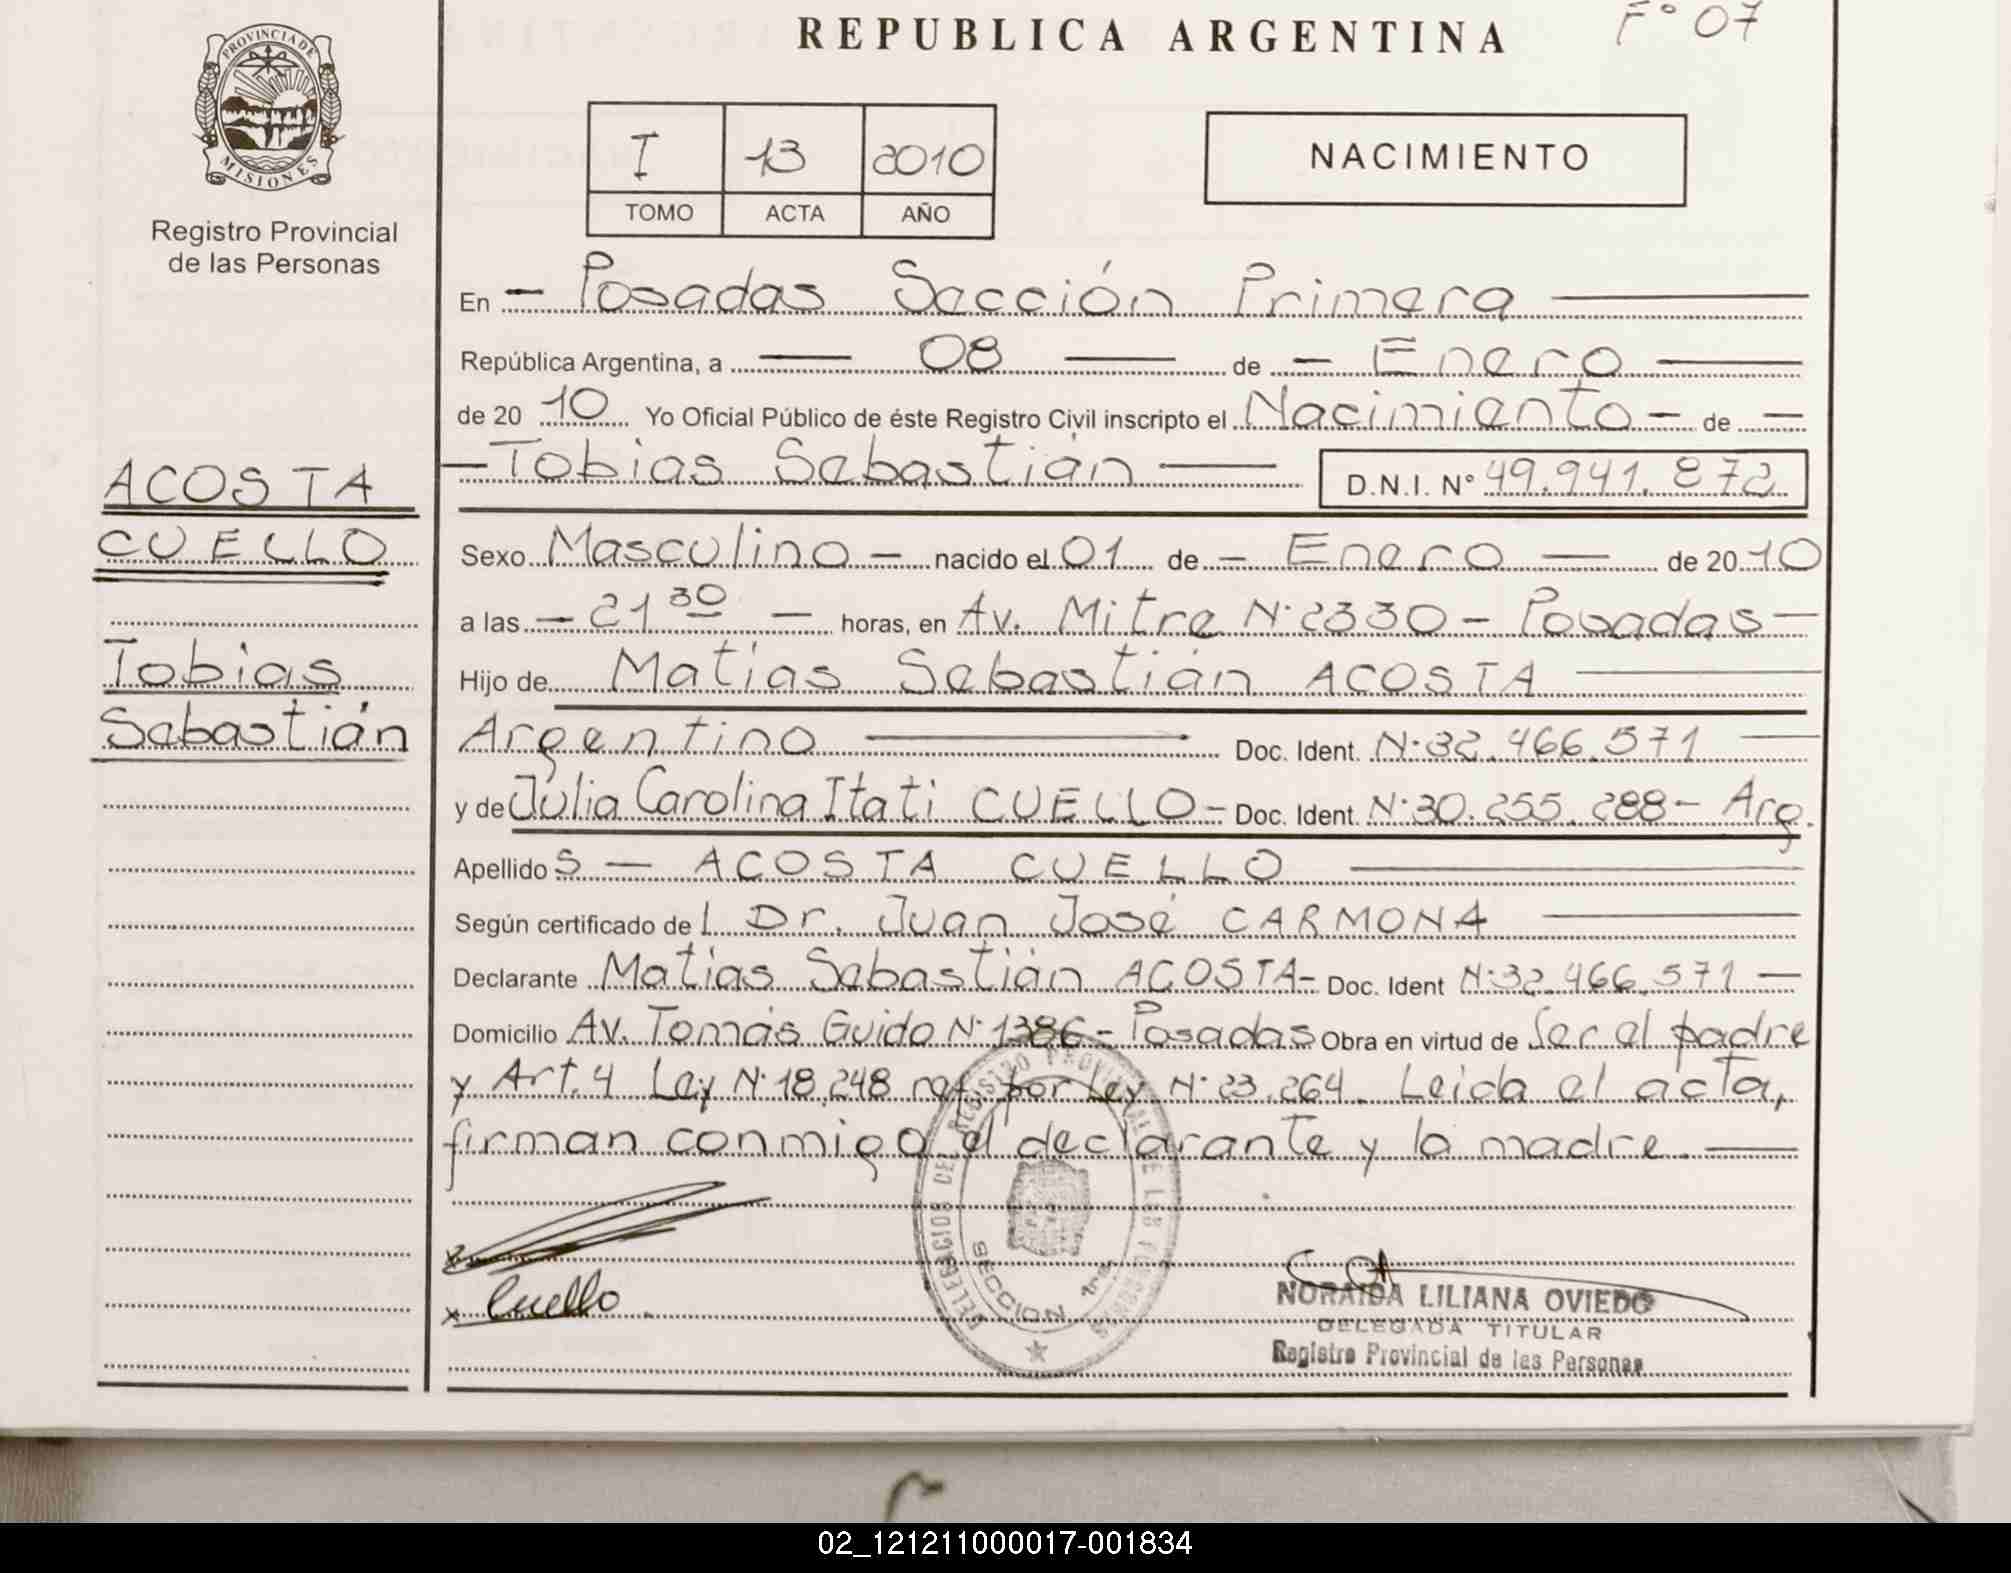 REPUBLICA ARGENTINA
Fº 07
PROVINCIA DE
MISIONES
Registro Provincial
de las Personas
I 13 2010
TOMO ACTA AÑO
NACIMIENTO
En - Posadas Sección Primera
República Argentina, a 08 de - Enero
de 20 10 Yo Oficial Público de éste Registro Civil inscripto el Nacimiento - de -
- Tobias Sebastián D.N.I. Nº 49.941.872
ACOSTA
CUELLO
Tobias
Sebastián
Sexo Masculino - nacido el 01 de - Enero - de 20 10
a las - 21 30 - horas, en Av. Mitre Nº 2330 - Posadas -
Hijo de Matías Sebastián ACOSTA
Argentino Doc. Ident. Nº 32.466.571
y de Julia Carolina Itati CUELLO - Doc. Ident. Nº 30.255.288 - Arg.
Apellido s - ACOSTA CUELLO
Según certificado de l Dr. Juan José CARMONA
Declarante Matías Sebastián ACOSTA - Doc. Ident Nº 32.466.571 -
Domicilio Av. Tomás Guido Nº 1386 - Posadas Obra en virtud de Ser el padre
y Art. 4 Ley Nº 18.248 ref por Ley Nº 23.264. Leida el acta,
firman conmigo el declarante y la madre.
x
x Cuello
DELEGACION DEL REGISTRO PROVINCIAL DE LAS PERSONAS
SECCION 1ra
NORAIDA LILIANA OVIEDO
DELEGADA TITULAR
Registro Provincial de las Personas
02_121211000017-001834